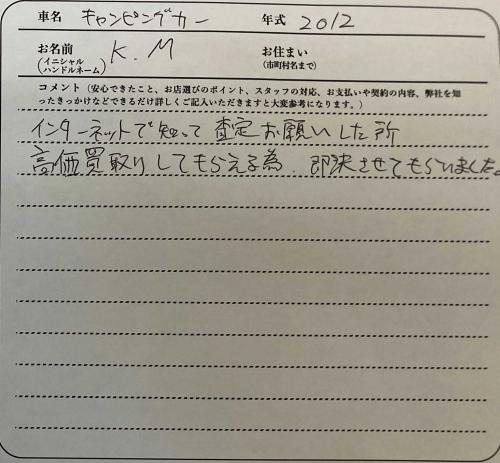 車名 キャンピングカー 年式 2012
お名前 K.M お住まい
(イニシャル ハンドルネーム) (市町村名まで)
コメント（安心できたこと、お店選びのポイント、スタッフの対応、お支払いや契約の内容、弊社を知
ったきっかけなどできるだけ詳しくご記入いただきますと大変参考になります。）
インターネットで知って 査定お願いした所
高価買取りしてもらえる為、即決させてもらいました。